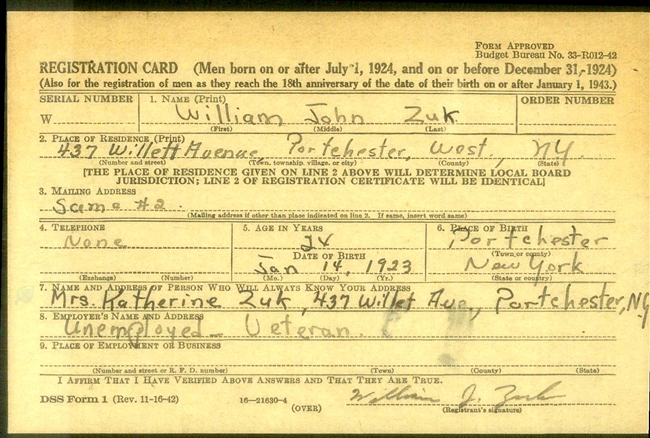 FORM APPROVED
Budget Bureau No. 33-R012-42
REGISTRATION CARD (Men born on or after July 1, 1924, and on or before December 31, 1924)
(Also for the registration of men as they reach the 18th anniversary of the date of their birth on or after January 1, 1943.)
SERIAL NUMBER 1. NAME (Print) ORDER NUMBER
W William John Zuk
(First) (Middle) (Last)
2. PLACE OF RESIDENCE (Print)
437 Willett Avenue Portchester, West, NY.
(Number and street) (Town, township, village, or city) (County) (State)
[THE PLACE OF RESIDENCE GIVEN ON LINE 2 ABOVE WILL DETERMINE LOCAL BOARD
JURISDICTION; LINE 2 OF REGISTRATION CERTIFICATE WILL BE IDENTICAL]
3. MAILING ADDRESS
Same #2.
(Mailing address if other than place indicated on line 2. If same, insert word same)
4. TELEPHONE 5. AGE IN YEARS 6. PLACE OF BIRTH
None 24 Portchester
DATE OF BIRTH (Town or county)
Jan 14, 1923 New York
(Exchange) (Number) (Mo.) (Day) (Yr.) (State or country)
7. NAME AND ADDRESS OF PERSON WHO WILL ALWAYS KNOW YOUR ADDRESS
Mrs. Katherine Zuk, 437 Willet Ave, Portchester, NY
8. EMPLOYER'S NAME AND ADDRESS
Unemployed - Veteran.
9. PLACE OF EMPLOYMENT OR BUSINESS
(Number and street or R. F. D. number) (Town) (County) (State)
I AFFIRM THAT I HAVE VERIFIED ABOVE ANSWERS AND THAT THEY ARE TRUE.
DSS Form 1 (Rev. 11-16-42) 16—21630-4 William J. Zuk
(OVER) (Registrant's signature)